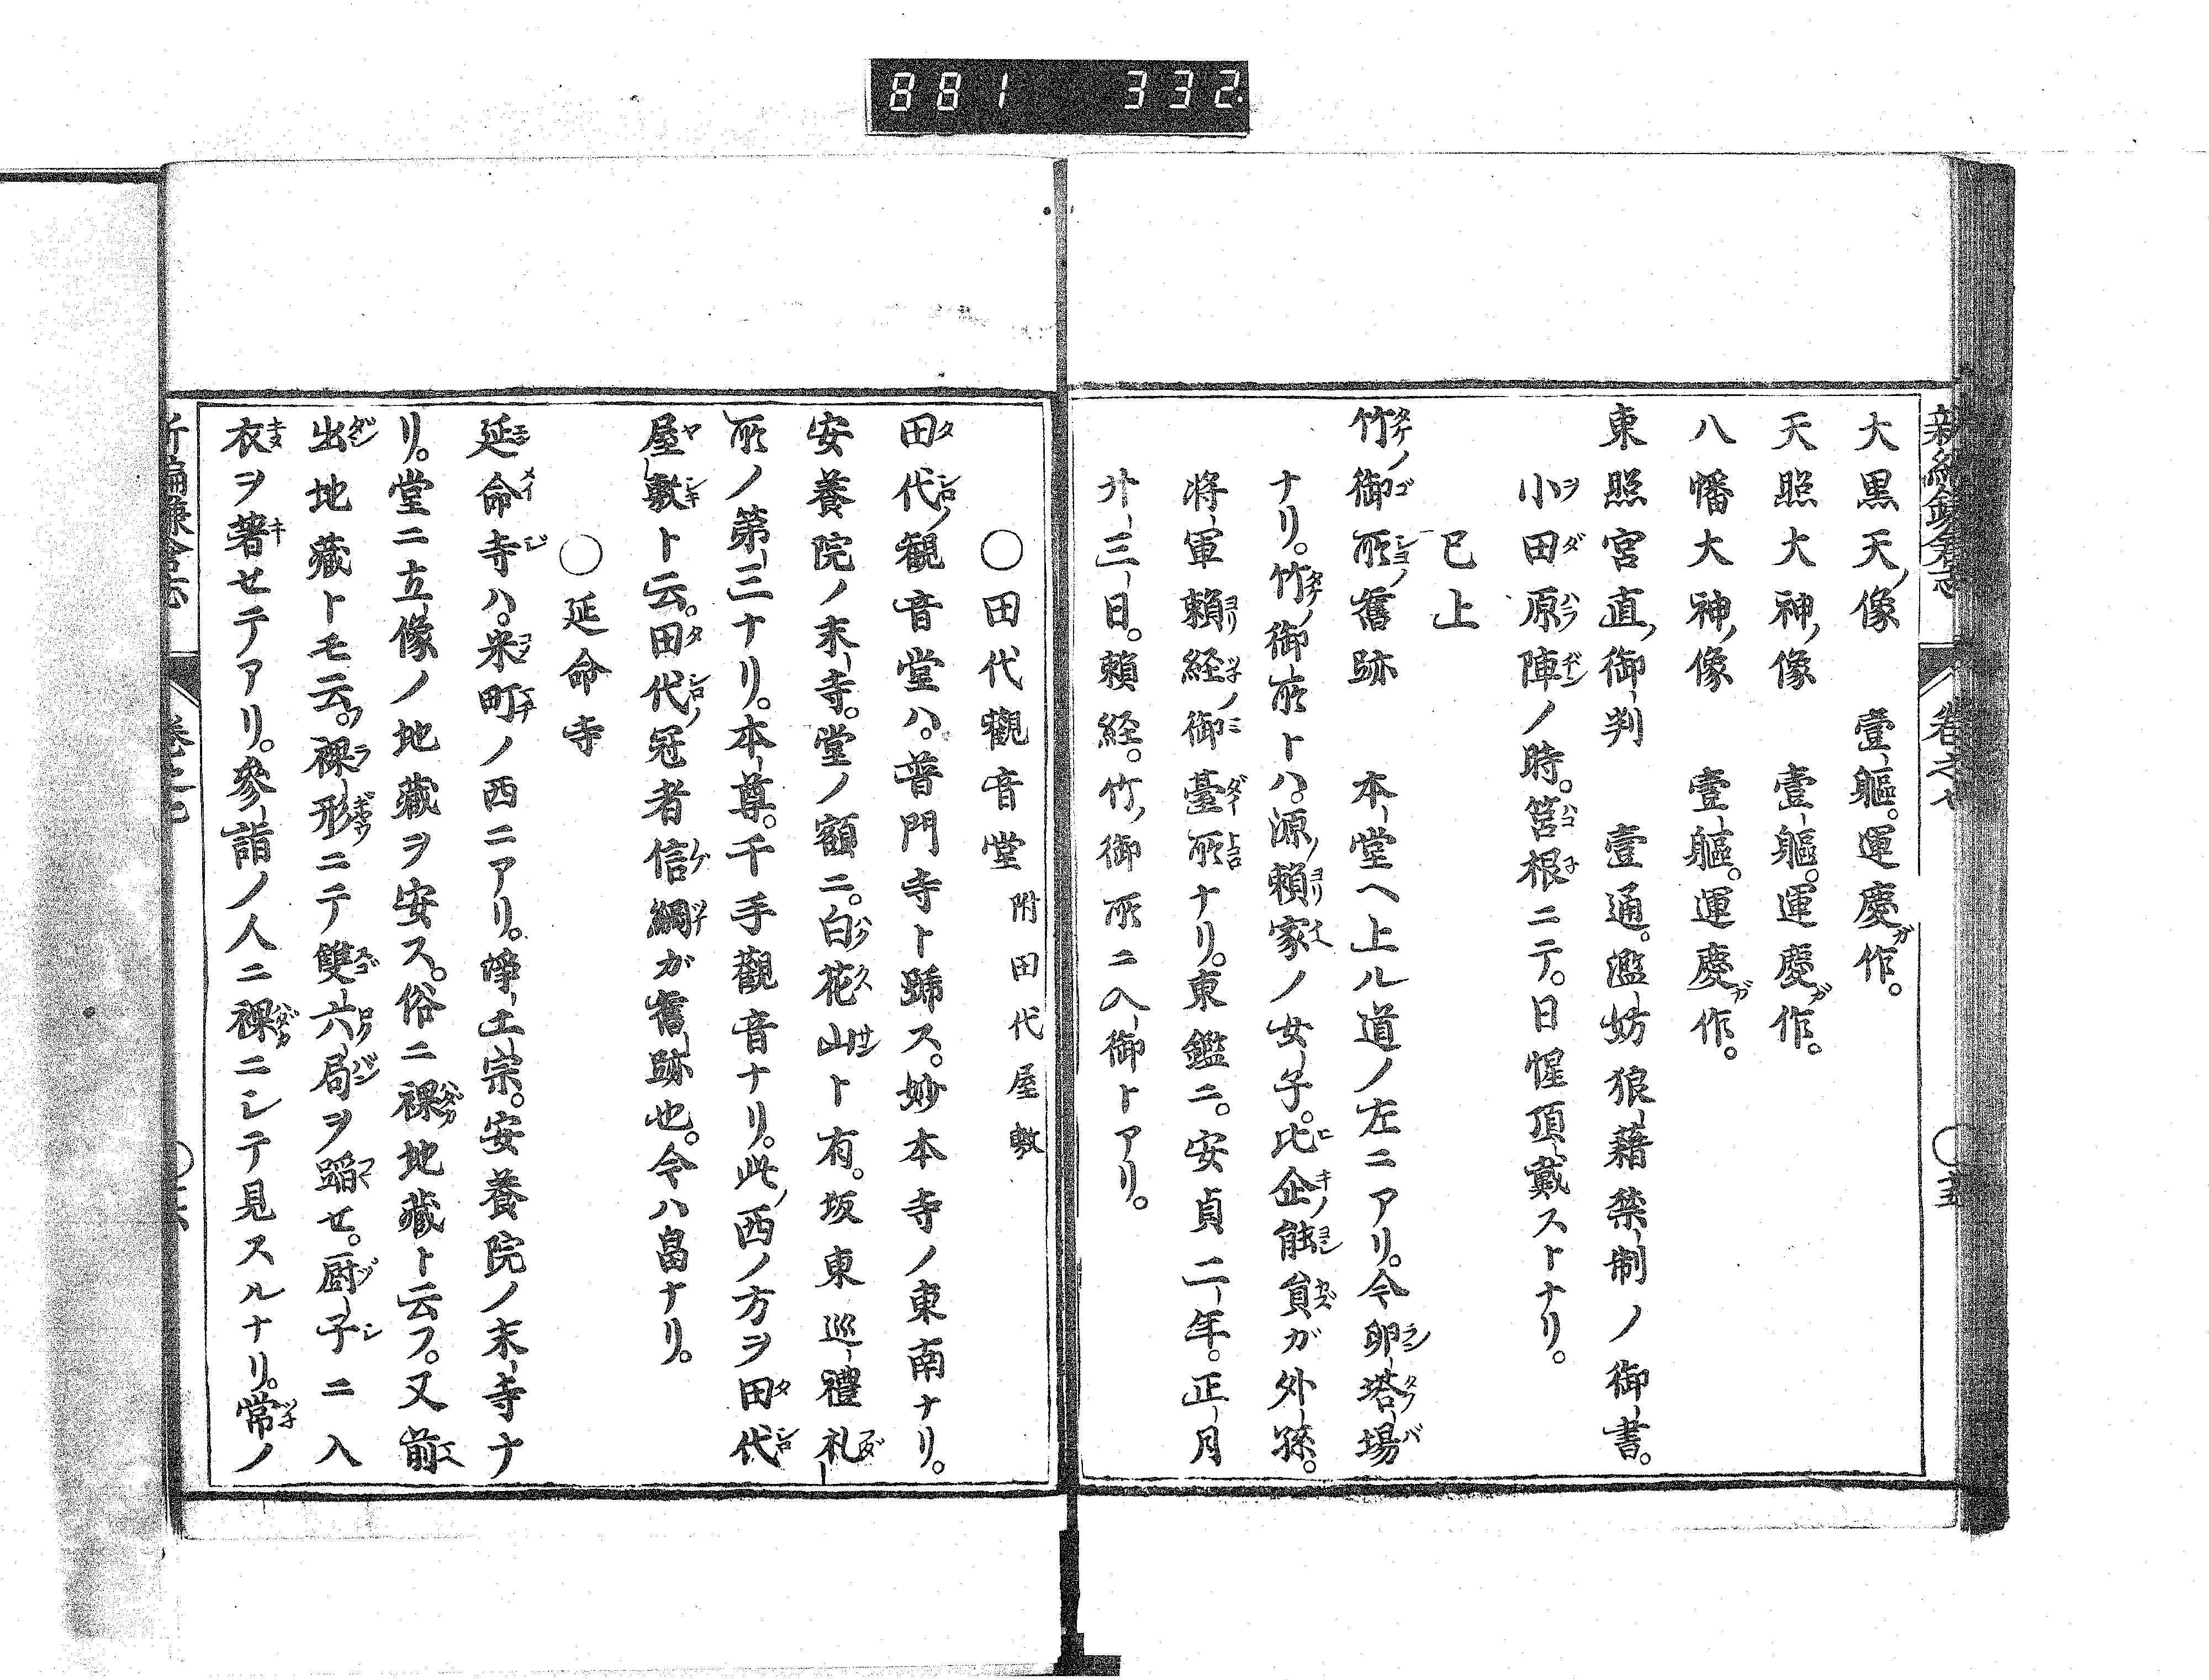 881 332
大黒天ノ像 壹軀。運慶ガ作。
天照大神ノ像 壹軀。運慶ガ作。
八幡大神ノ像 壹軀。運慶ガ作。
東照宮直ノ御判 壹通。濫妨狼藉禁制ノ御書。
小田原陣ノ時。筥根ニテ。日惺頂戴ストナリ。
已上
竹ノ御所ノ舊跡 本堂ヘ上ル道ノ左ニアリ。今卵塔場
ナリ。竹ノ御所トハ。源ノ頼家ノ女子。比企ノ能員ガ外孫。
將軍頼経ノ御臺所ナリ。東鑑ニ。安貞二年。正月
廾三日。頼経。竹ノ御所ニ入御トアリ。
○田代觀音堂 附田代屋敷
田代ノ觀音堂ハ。普門寺ト蹄ス。妙本寺ノ東南ナリ。
安養院ノ末寺。堂ノ額ニ。白花山ト有。坂東巡禮札
所ノ第三ナリ。本尊。千手觀音ナリ。此ノ西ノ方ヲ田代
屋敷ト云。田代ノ冠者信綱ガ舊跡也。今ハ畠ナリ。
○延命寺
延命寺ハ。米町ノ西ニアリ。淨土宗。安養院ノ末寺ナ
リ。堂ニ立像ノ地藏ヲ安ス。俗ニ裸地藏ト云フ。又前
出地藏トモ云。裸形ニテ雙六局ヲ蹈セ。厨子ニ入
衣ヲ著セテアリ。參詣ノ人ニ裸ニシテ見スルナリ。常ノ